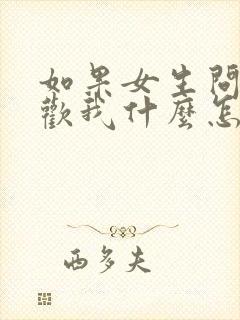 如果女生問
歡我什麼怎
西多夫